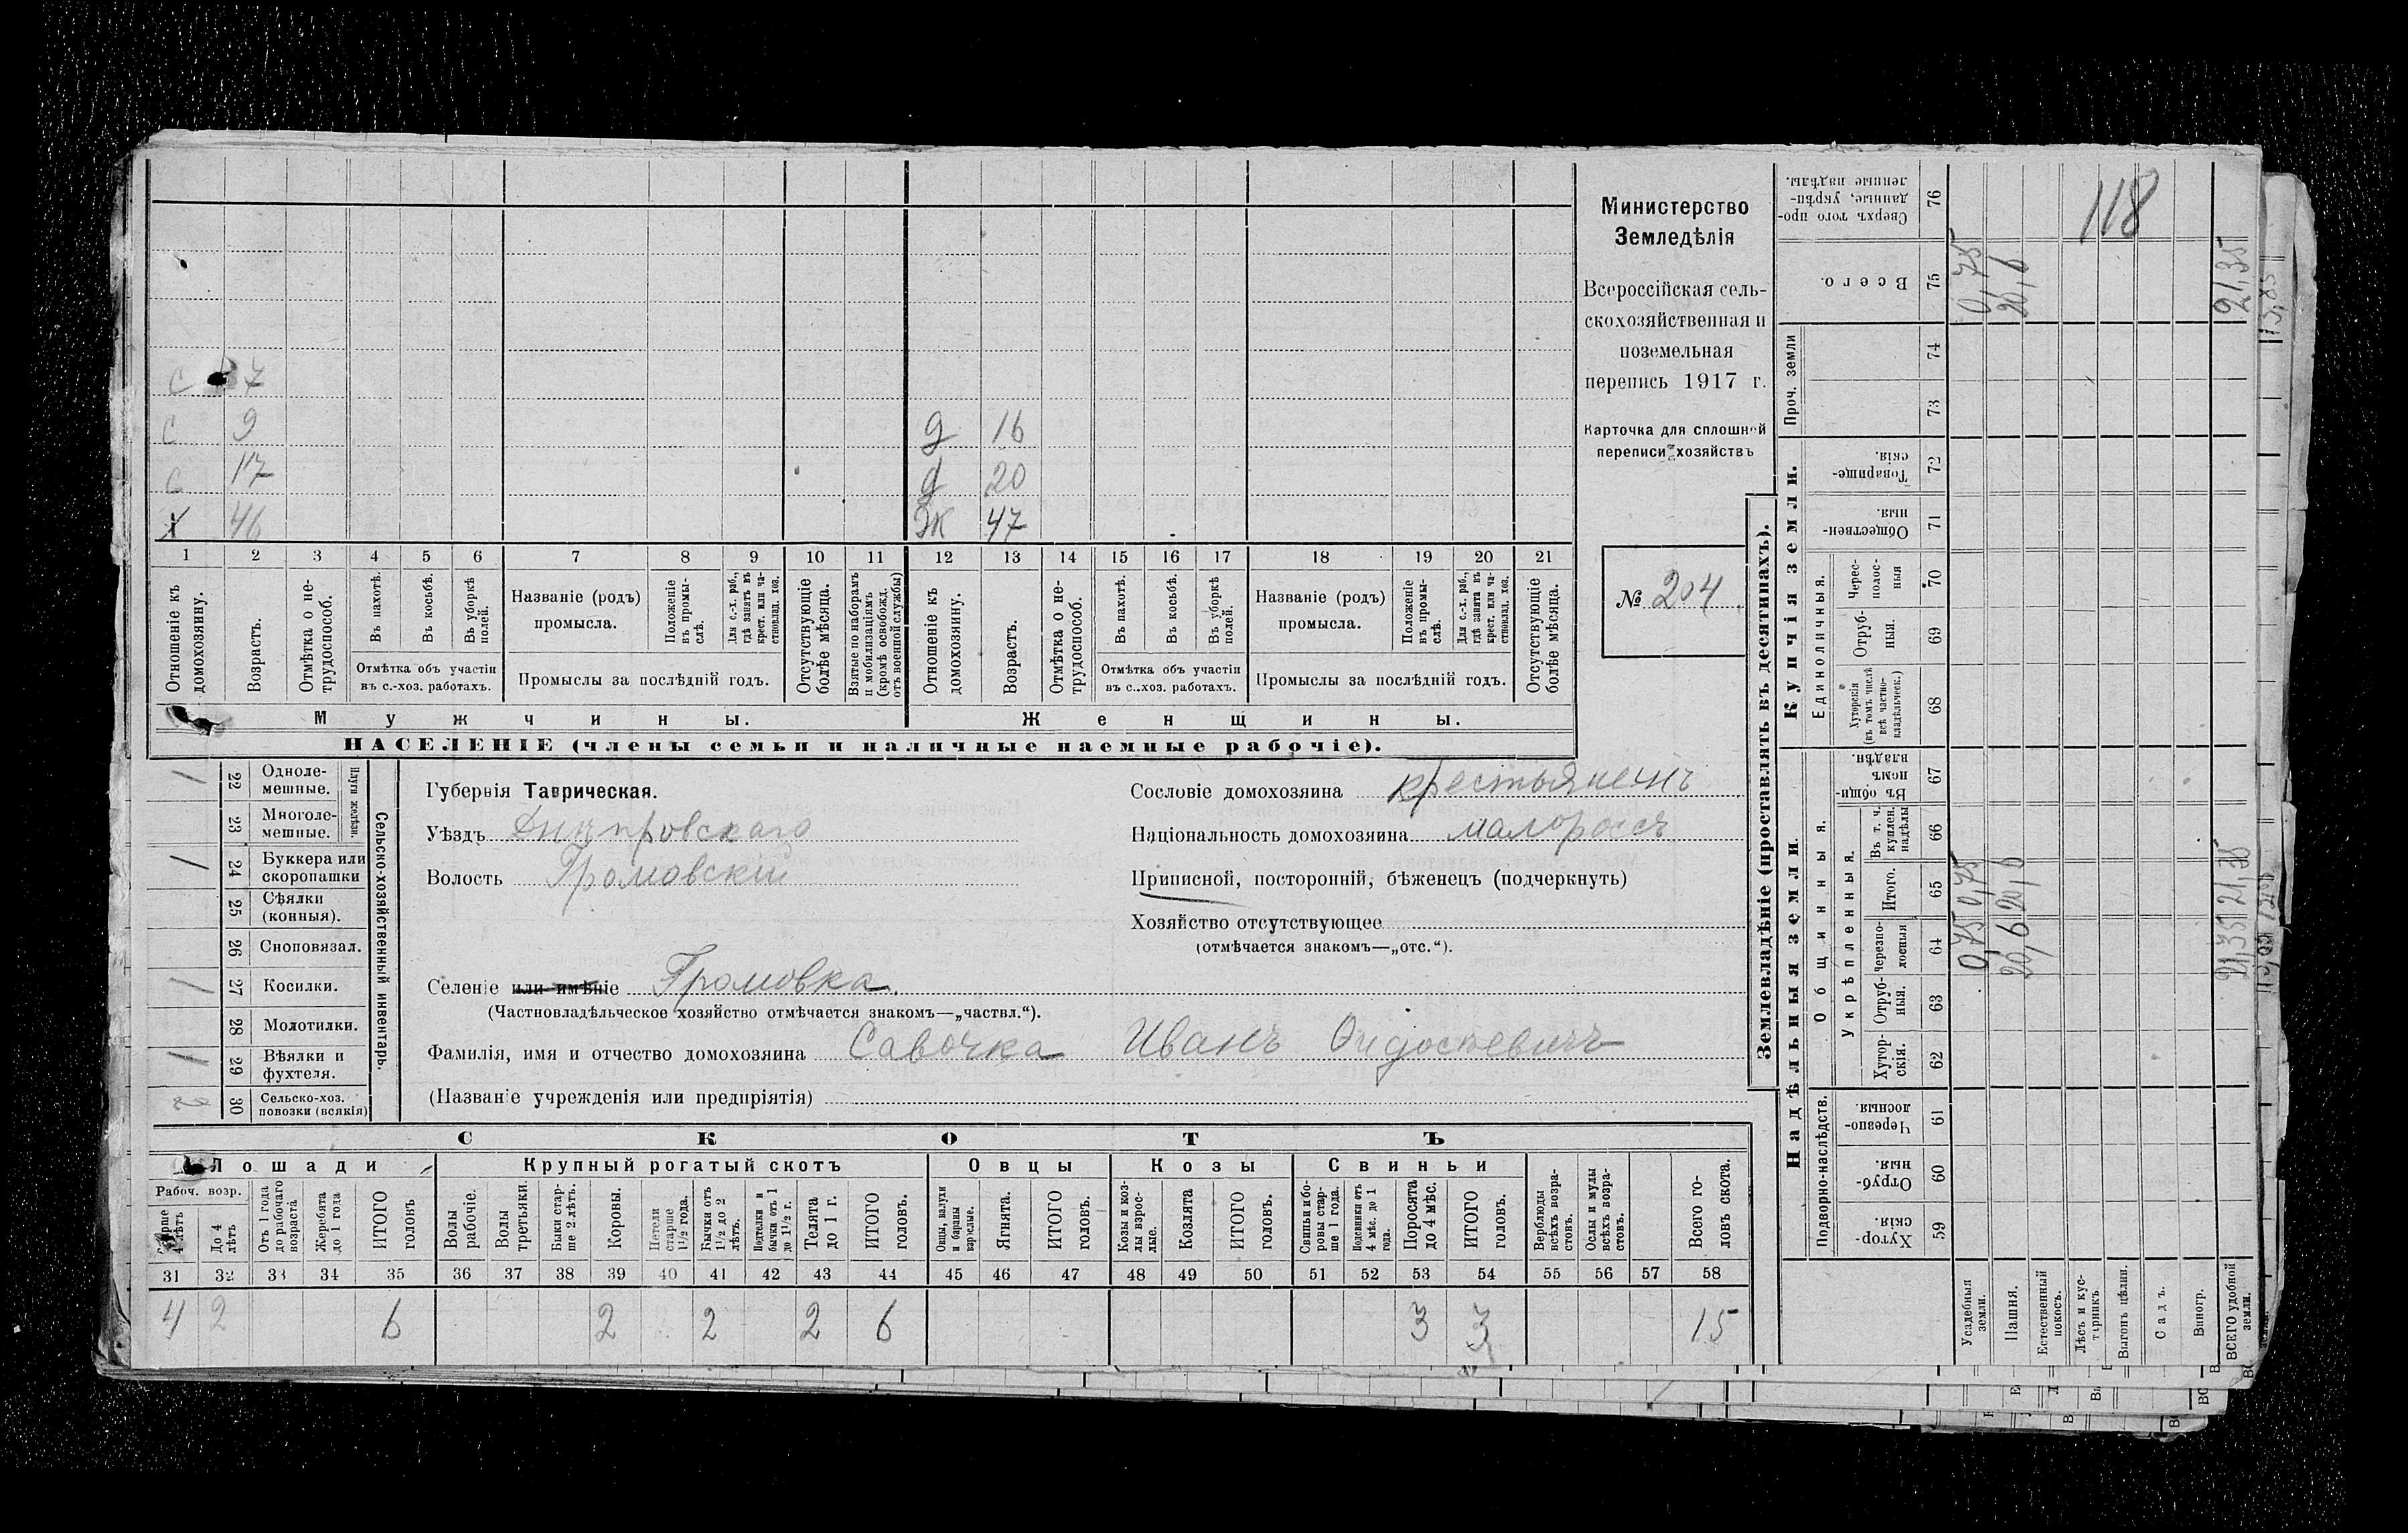 С 7
С 9
С 17
Х 46
д 16
д 20
Ж 47
1 2 3 4 5 6 7 8 9 10 11 12 13 14 15 16 17 18 19 20 21
Отношеніе къ домохозяину.
Возрастъ.
Отмѣтка о нетрудоспособ.
Въ пахотѣ.
Въ косьбѣ.
Въ уборкѣ полей.
Отмѣтка объ участіи въ с.-хоз. работахъ.
Названіе (родъ) промысла.
Положеніе въ промыслѣ.
Для с.-х. раб., гдѣ занятъ въ крест. или частновлад. хоз.
Промыслы за послѣдній годъ.
Отсутствующіе болѣе мѣсяца.
Взятые по наборамъ и мобилизаціямъ (кромѣ освобожд. отъ военной службы)
Отношеніе къ домохозяину.
Возрастъ.
Отмѣтка о нетрудоспособ.
Въ пахотѣ.
Въ косьбѣ.
Въ уборкѣ полей.
Отмѣтка объ участіи въ с.-хоз. работахъ.
Названіе (родъ) промысла.
Положеніе въ промыслѣ.
Для с.-х. раб., гдѣ занята въ крест. или частновлад. хоз.
Промыслы за послѣдній годъ.
Отсутствующіе болѣе мѣсяца.
Мужчины.
Женщины.
НАСЕЛЕНІЕ (члены семьи и наличные наемные рабочіе).
Министерство
Земледѣлія
Всероссійская сель-
скохозяйственная и
поземельная
перепись 1917 г.
Карточка для сплошной
переписи хозяйствъ
№ 204
Сельско-хозяйственный инвентарь.
Плуги желѣзн.
1 22 Одноле-
мешные.
23 Многоле-
мешные.
1 24 Буккера или
скоропашки
25 Сѣялки
(конныя).
26 Сноповязал.
1 27 Косилки.
28 Молотилки.
1 29 Вѣялки и
фухтеля.
2 30 Сельско-хоз.
повозки (всякія)
Губернія Таврическая.
Уѣздъ Днѣпровскаго
Волость Громовскій
Селеніе или имѣніе Громовка.
(Частновладѣльческое хозяйство отмѣчается знакомъ—„частвл.“).
Фамилія, имя и отчество домохозяина Савочка Иванъ
(Названіе учрежденія или предпріятія)
Сословіе домохозяина крестьянинъ
Національность домохозяина малороссъ
Приписной, посторонній, бѣженецъ (подчеркнуть)
Хозяйство отсутствующее
(отмѣчается знакомъ—„отс.“).
СКОТЪ
Лошади
Крупный рогатый скотъ
Овцы
Козы
Свиньи
Рабоч. возр.
Старше 4 лѣтъ
До 4 лѣтъ
Отъ 1 года до рабочаго возраста
Жеребята до 1 года
ИТОГО головъ
Волы рабочіе.
Волы третьяки.
Быки старше 2 лѣтъ.
Коровы.
Нетели старше 1½ года.
Бычки отъ 1½ до 2 лѣтъ.
Подтелки и бычки отъ 1 до 1½ г.
Телята до 1 г.
ИТОГО головъ.
Овцы, валухи и бараны взрослые.
Ягнята.
ИТОГО головъ.
Козы и козлы взрослые.
Козлята
ИТОГО головъ.
Свиньи и боровы старше 1 года.
Подсвинки отъ 4 мѣс. до 1 года.
Поросята до 4 мѣс.
ИТОГО головъ.
Верблюды всѣхъ возрастовъ.
Ослы и мулы всѣхъ возрастовъ.
Всего головъ скота.
31 32 33 34 35 36 37 38 39 40 41 42 43 44 45 46 47 48 49 50 51 52 53 54 55 56 57 58
4 2 6 2 2 2 6 3 3 15
Землевладѣніе (проставлять въ десятинахъ).
Надѣльныя земли.
Купчія земли.
Проч. земли
Подворно-наслѣдств.
Общинныя.
Укрѣпленныя.
Единоличныя.
Хуторскія. 59
Отрубныя. 60
Черезполосныя. 61
Хуторскія. 62
Отрубныя. 63
Черезполосныя 64
Итого. 65
Въ т. ч. куплен. надѣлы 66
Въ общинномъ владѣн. 67
Хуторскія (въ томъ числѣ всѣ частновладѣльческ.) 68
Отрубныя. 69
Чересполосныя 70
Общественныя. 71
Товарищескія. 72
73
74
Всего. 75
Сверхъ того проданные, укрѣпленные надѣлы. 76
Усадебныя земли. 0,75 0,75 0,75
Пашня. 20,6 20,6 20,6
Естественный покосъ.
Лѣсъ и кустарникъ
Выгонъ цѣлин.
Садъ.
Виногр.
ВСЕГО удобной земли. 21,35 21,35 21,35
118